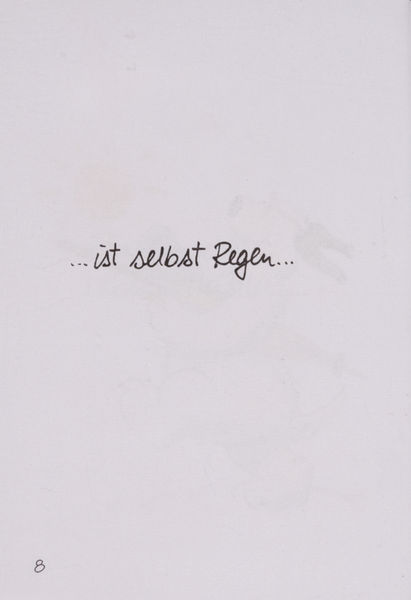 ...ist selbst Regen...
8